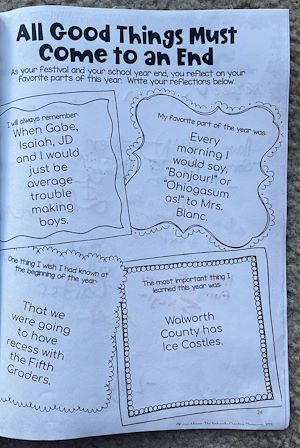 All Good Things Must
Come to an End
As your festival and your school year end, you reflect on your
favorite parts of this year. Write your reflections below.
I will always remember:
When Gabe,
Isaiah, JD
and I would
just be
average
trouble
making
boys.
My favorite part of the year was:
Every
morning I
would say,
"Bonjour!" or
"Ohiogasum
as!" to Mrs.
Blanc.
One thing I wish I had known at
the beginning of the year:
That we
were going
to have
recess with
the Fifth
Graders.
The most important thing I
learned this year was:
Walworth
County has
Ice Castles.